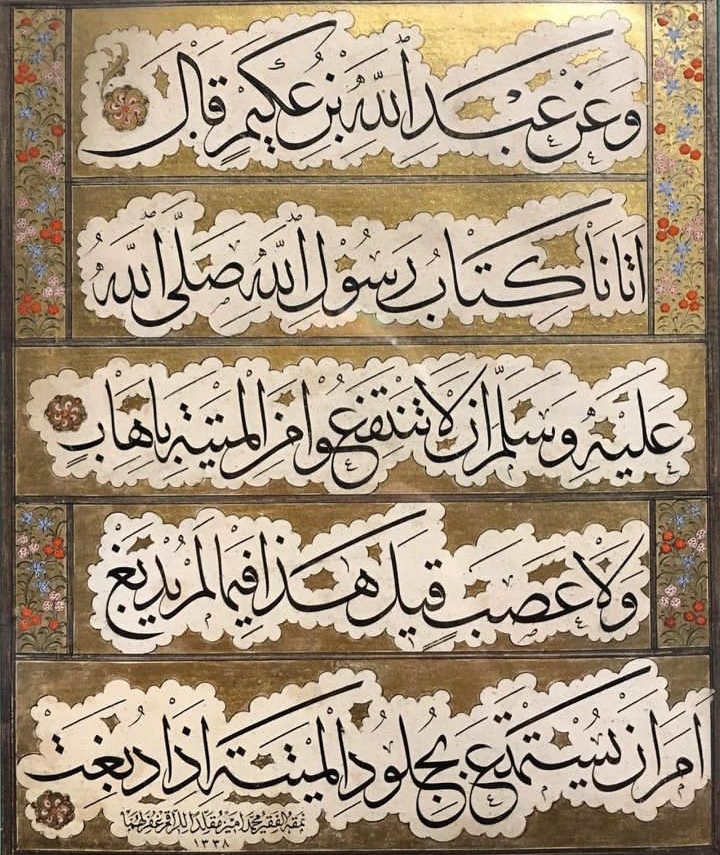 وَعَنْ عَبْدِ اللّٰهِ بْنِ عُكَيْمٍ قَالَ
اَتَانَا كِتَابُ رَسُوْلِ اللّٰهِ صَلَّى اللّٰهُ
عَلَيْهِ وَسَلَّمَ اَنْ لَا تَنْتَفِعُوْا مِنَ الْمَيْتَةِ بِاِهَابٍ
وَلَا عَصَبٍ قِيْلَ هَذَا فِيْمَا لَمْ يُدْبَغْ
اَمَرَ اَنْ يُسْتَمْتَعَ بِجُلُودِ الْمَيْتَةِ اِذَا دُبِغَتْ
نمقه الفقير محمد امين مقلد غفر لهما
١٣٣٨